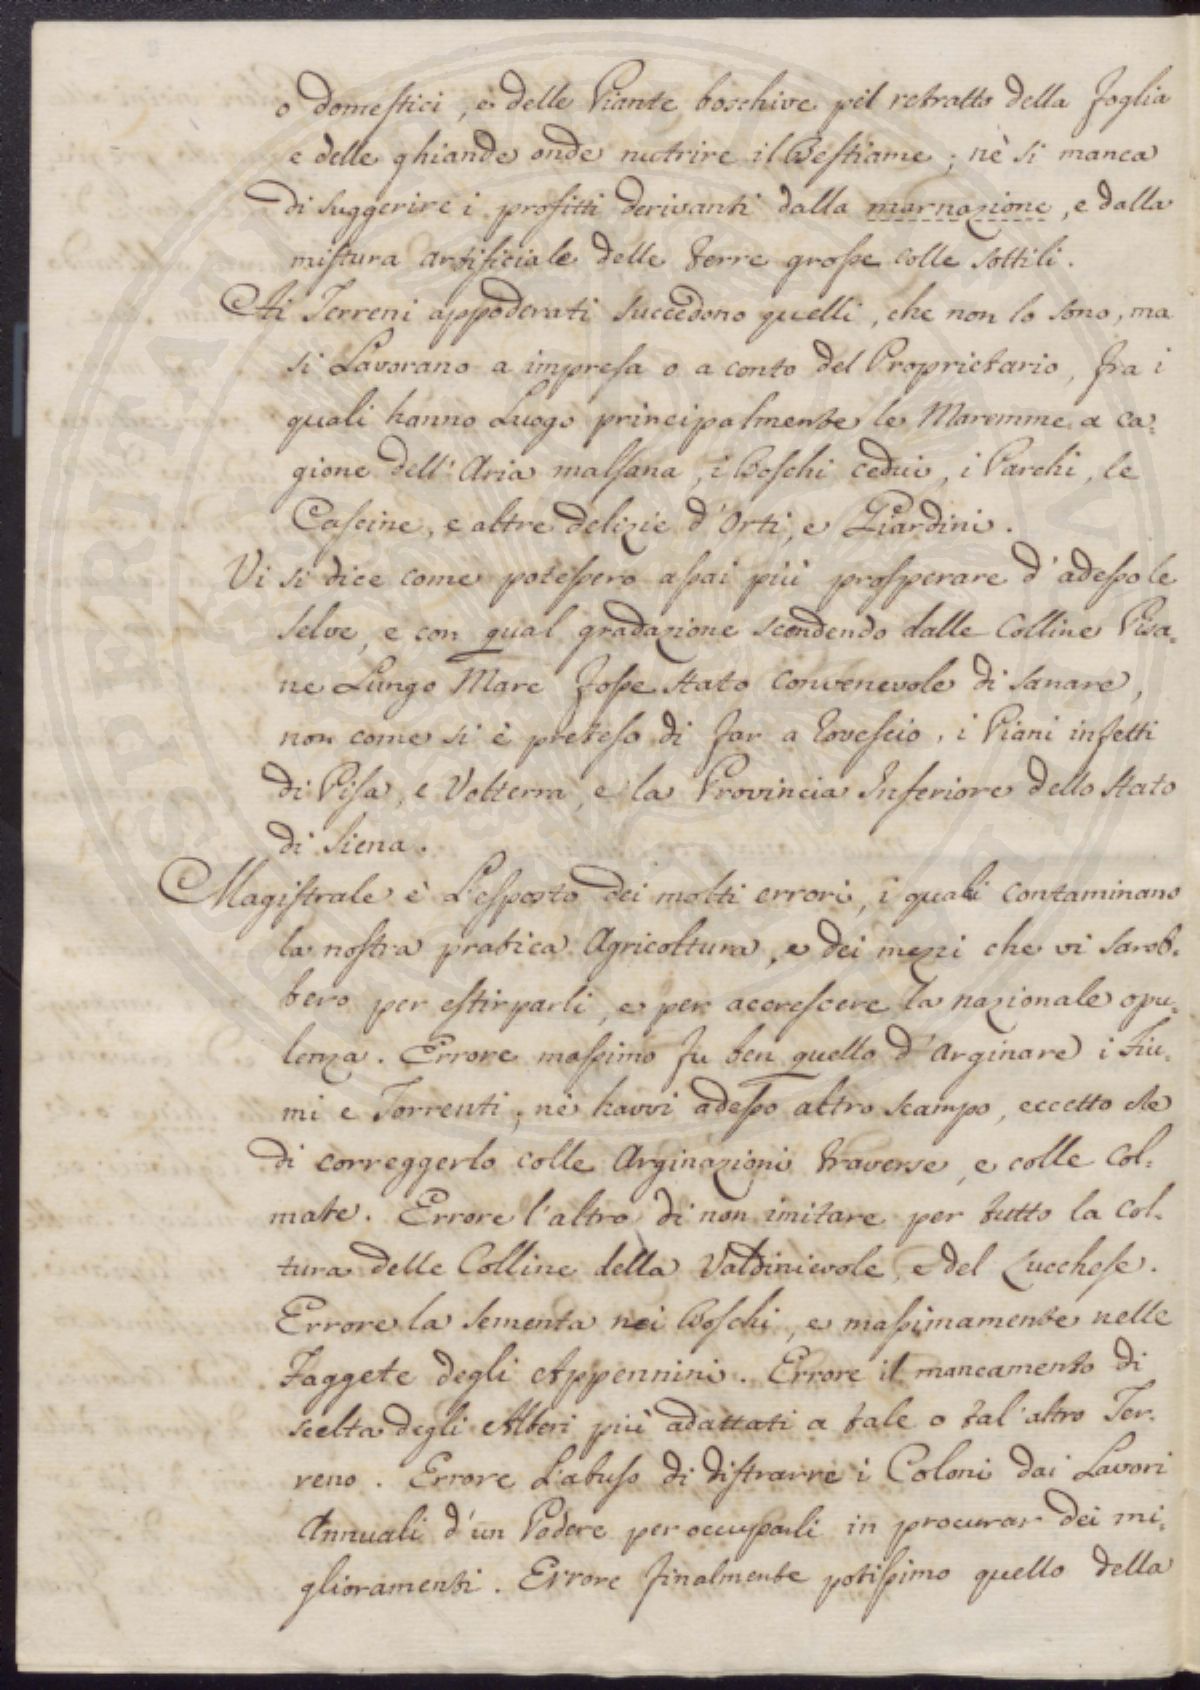 o domestici, e delle Piante boschive pel retratto della foglia
e delle ghiande onde nutrire il Bestiame; nè si manca
di suggerire i profitti derivanti dalla marnazione, e dalla
mistura artificiale delle terre grosse colle sottili.
Ai Terreni appoderati succedono quelli, che non lo sono, ma
si Lavorano a impresa o a conto del Proprietario, fra i
quali hanno Luogo principalmente le Maremme a ca=
gione dell'Aria malsana, i Boschi cedui, i Parchi, le
Cascine, e altre delizie d'Orti, e Giardini.
Vi si dice come potessero assai più prosperare d'adesso le
selve, e con qual gradazione scendendo dalle Colline Pisa=
ne Lungo Mare fosse stato convenevole di sanare,
non come si è preteso di far a rovescio, i Piani infetti
di Pisa, e Volterra, e la Provincia Inferiore dello Stato
di Siena.
Magistrale è L'esposto dei molti errori, i quali contaminano
la nostra pratica Agricoltura, e dei mezzi che vi sareb=
bero per estirparli, e per accrescere la nazionale opu=
lenza. Errore massimo fu ben quello d'arginare i Fiu=
mi e Torrenti; nè havvi adesso altro scampo, eccetto che
di correggerlo colle Arginazioni traverse, e colle Col=
mate. Errore l'altro di non imitare per tutto la Col=
tura delle Colline della Valdinievole, e del Lucchese.
Errore la sementa nei Boschi, e massimamente nelle
Faggete degli Appennini. Errore il mancamento di
scelta degli Alberi più adattati a tale o tal'altro Ter=
reno. Errore L'abuso di distrarre i Coloni dai Lavori
Annuali d'un Podere per occuparli in procurar dei mi=
glioramenti. Errore finalmente potissimo quello della